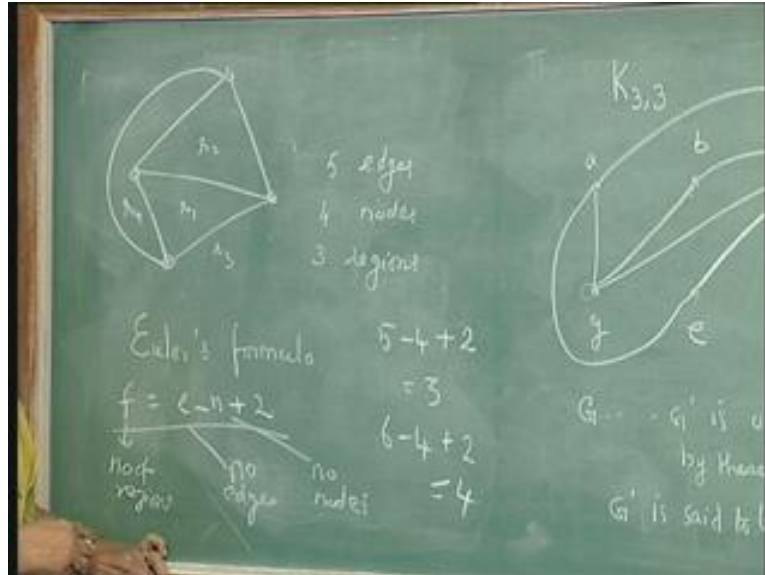 r2
r4
r1
r3
5 edges
4 nodes
3 regions
Euler's formula
f = e-n+2
no of
regions
no
edges
no
nodes
5-4+2
=3
6-4+2
=4
K3,3
a
b
g
e
G---- G' is
by
G' is said to